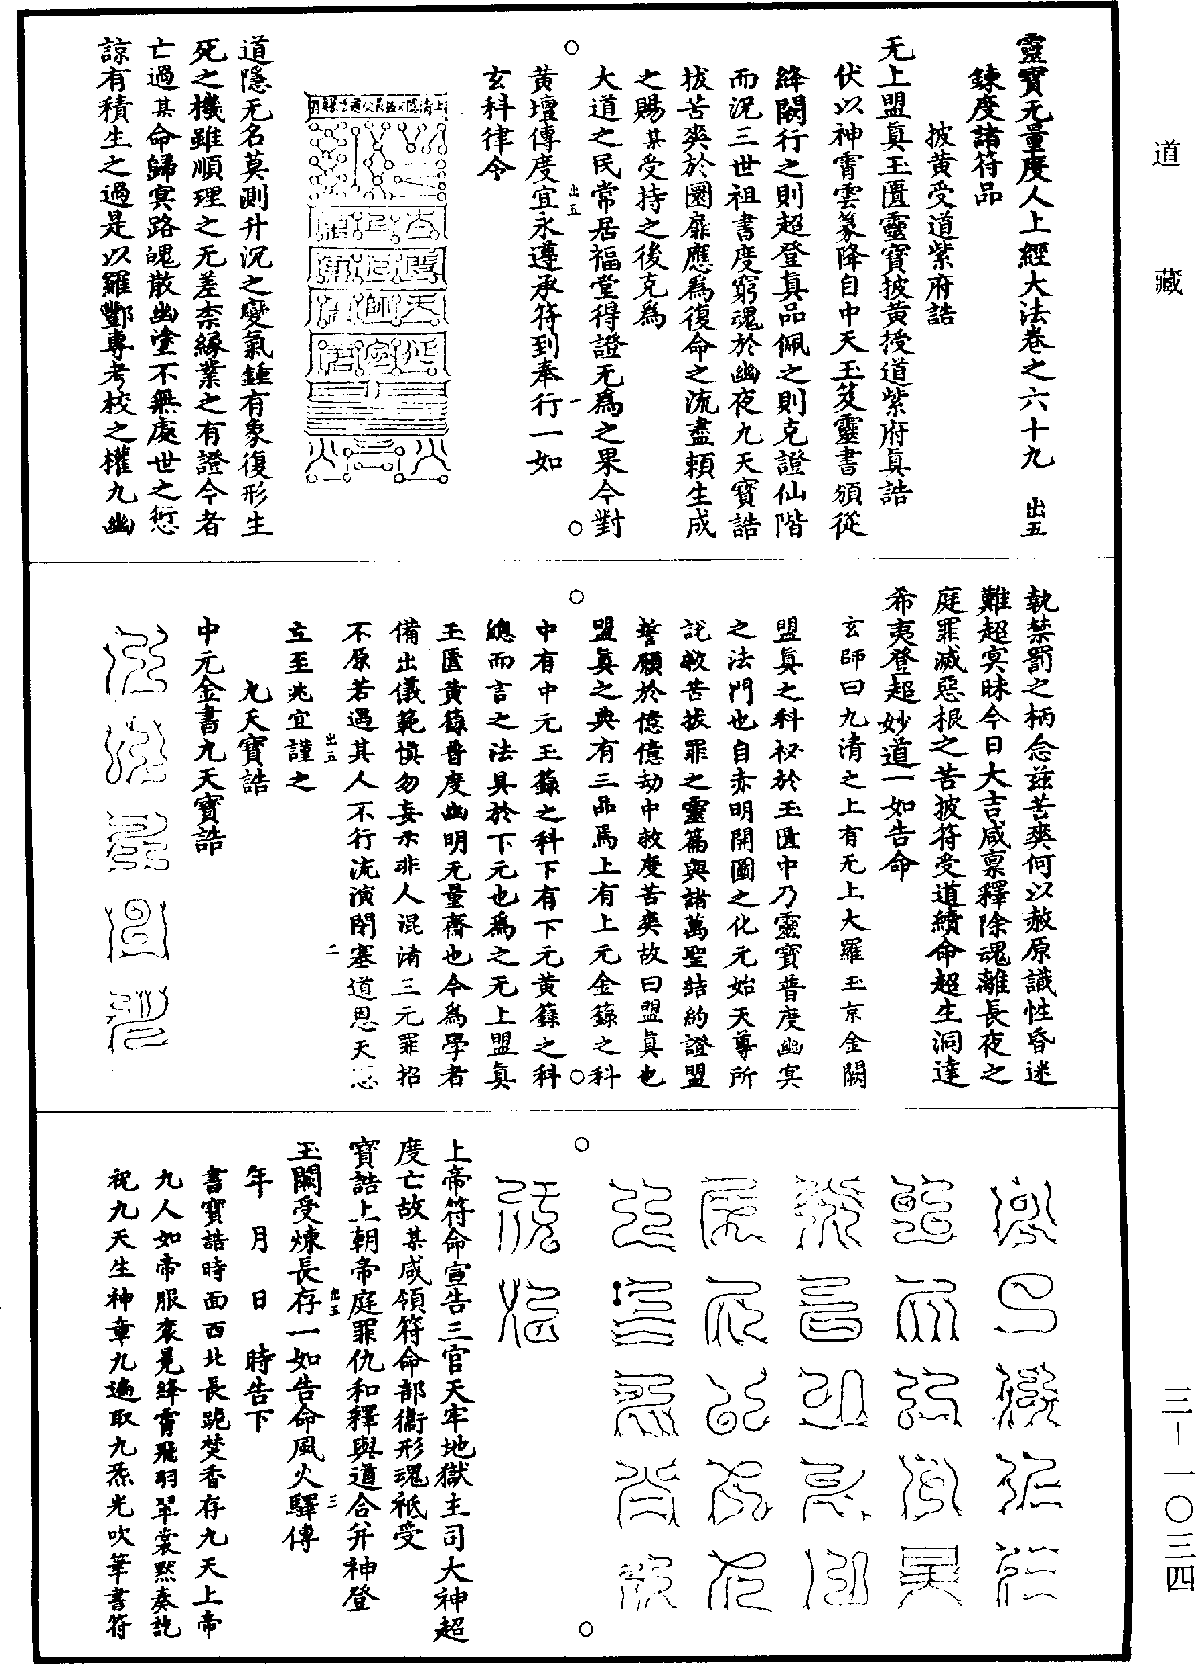 道藏
靈寶无量度人上經大法卷之六十九　出五
鍊度諸符品
披黄受道紫府誥
无上盟真玉匱靈寶披黄授道紫府真誥
伏以神霄雲篆降自中天玉笈靈書頒從
絳闕行之則超登真品佩之則克證仙階
而況三世祖書度窮魂於幽夜九天寶誥
拔苦爽於圜扉應為復命之流盡頼生成
之賜某受持之後克為
大道之民常居福堂得證无為之果今對
出五　一
黄壇傳度宜永遵承符到奉行一如
玄科律令
道隱无名莫測升沉之變氣鍾有象復形生
死之機雖順理之无差柰緣業之有證今者
亡過某命歸冥路魂散幽堂不無處世之愆
諒有積生之過是以羅酆專考校之權九幽
執禁罰之柄念兹苦爽何以赦原識性昏迷
難超冥昧今日大吉咸禀釋除魂離長夜之
庭罪滅惡根之苦披符受道續命超生洞達
希夷登超妙道一如告命
玄師曰九清之上有无上大羅玉京金闕
盟真之科秘於玉匱中乃靈寶普度幽冥
之法門也自赤明開圖之化元始天尊所
說救苦拔罪之靈篇與諸萬聖結約證盟
誓願於億億劫中救度苦爽故曰盟真也
盟真之典有三品焉上有上元金籙之科
中有中元玉籙之科下有下元黄籙之科
總而言之法具於下元也為之无上盟真
玉匱黄籙普度幽明无量齋也今為學者
備出儀範慎勿妄示非人混淆三元罪招
不原若遇其人不行流演閉塞道恩天
出五　二
立至兆宜謹之
九天寶誥
中元金書九天寶誥
上帝符命宣告三官天牢地獄主司大神超
度亡故某咸領符命部衞形魂祗受
寶誥上朝帝庭罪仇和釋與道合并神登
出五　三
玉闕受煉長存一如告命風火驛傳
年　月　日　時告下
書寶誥時面西北長跪焚香存九天上帝
九人如帝服衮冕絳霄飛羽翠裳黙奏訖
祝九天生神章九遍取九炁光吹筆書符
三－一〇三四